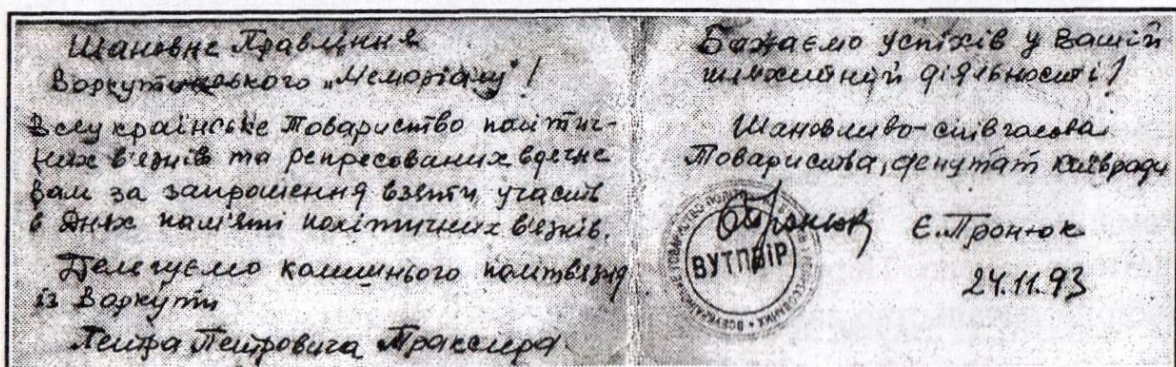 Шановне Правління
Воркутинського „Меморіалу"!
Всеукраїнське Товариство політич-
них в'язнів та репресованих вдячне
Вам за запрошення взяти участь
в Днях пам'яті політичних в'язнів.
Делегуємо колишнього політв'язня
із Воркути
Петра Петровича
Бажаємо успіхів у Вашій
шляхетній діяльності!
Шанобливо - співголова
Товариства, депутат Київради
Є. Пронюк
24.11.93
ВУТПВІР